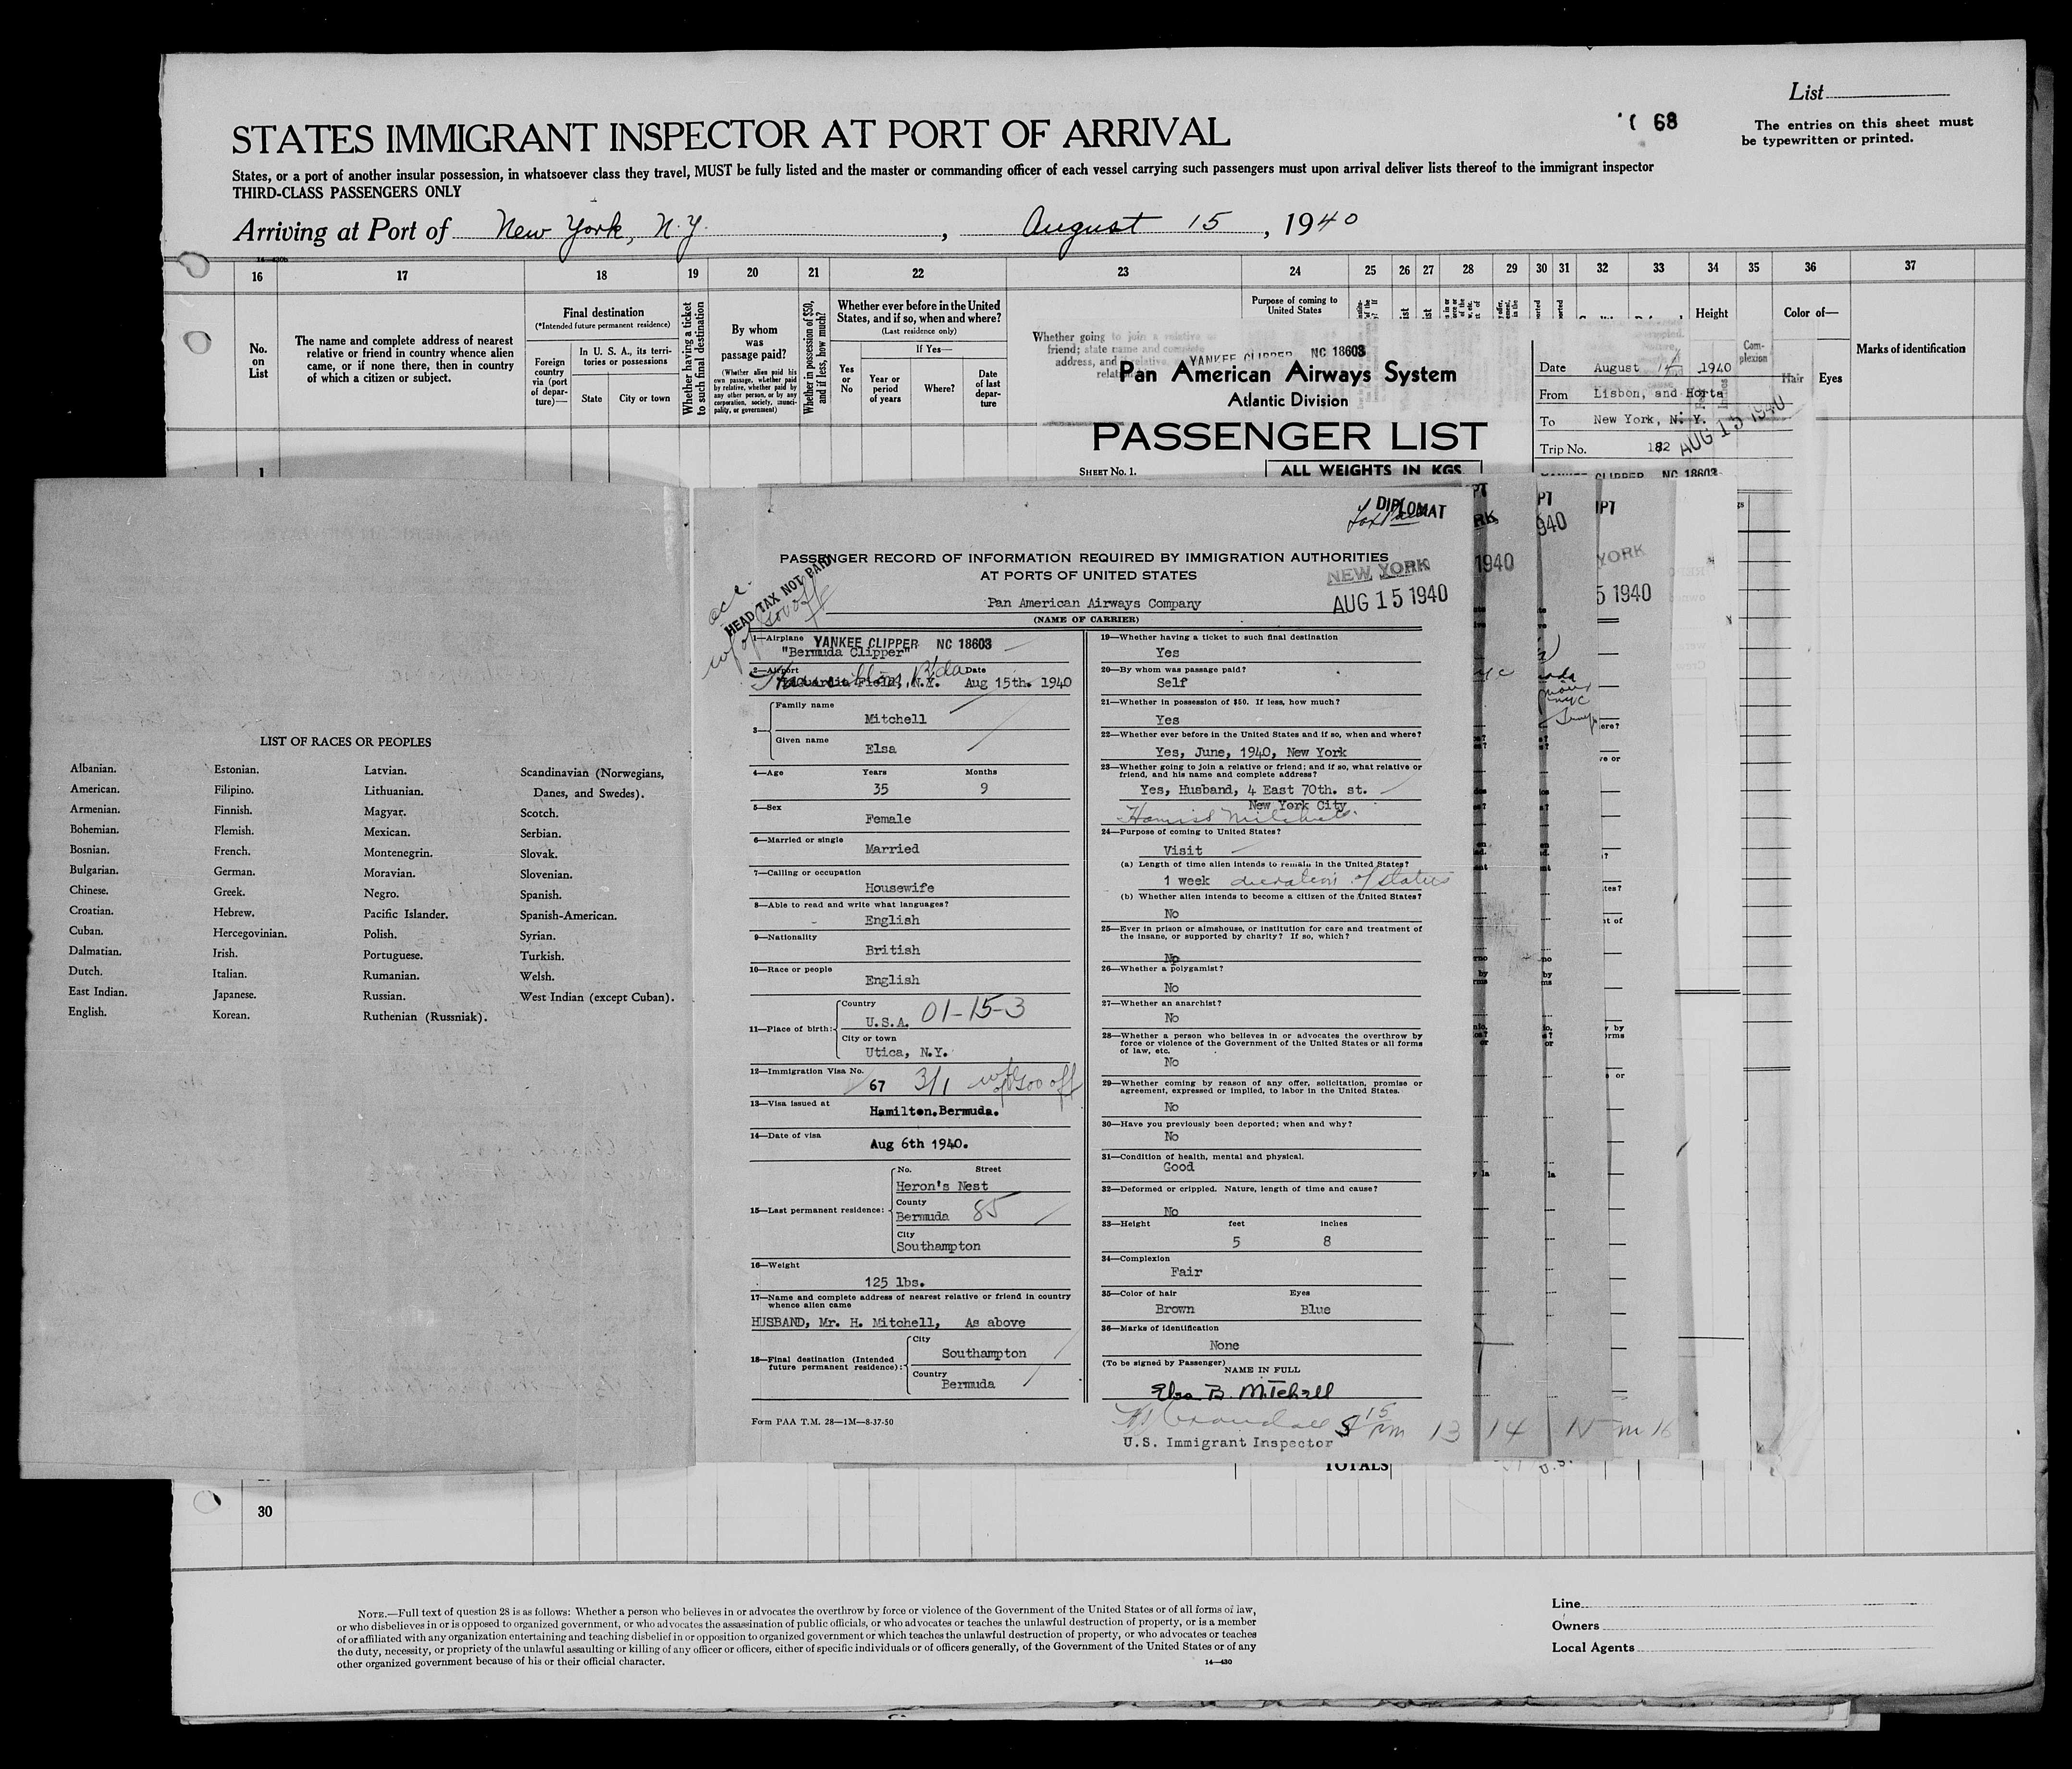 List
STATES IMMIGRANT INSPECTOR AT PORT OF ARRIVAL
68
The entries on this sheet must
be typewritten or printed.
States, or a port of another insular possession, in whatsoever class they travel, MUST be fully listed and the master or commanding officer of each vessel carrying such passengers must upon arrival deliver lists thereof to the immigrant inspector
THIRD-CLASS PASSENGERS ONLY
Arriving at Port of New York, N.Y. , August 15 , 1940
16 17 18 19 20 21 22 23 24 25 26 27 28 29 30 31 32 33 34 35 36 37
No. on List
The name and complete address of nearest
relative or friend in country whence alien
came, or if none there, then in country
of which a citizen or subject.
Final destination
(*Intended future permanent residence)
Foreign country via (port of departure)—
In U. S. A., its territories or possessions
State City or town
Whether having a ticket to such final destination
By whom was passage paid?
(Whether alien paid his own passage, whether paid by relative, whether paid by any other person, or by any corporation, society, municipality, or government)
Whether in possession of $50, and if less, how much?
Whether ever before in the United
States, and if so, when and where?
(Last residence only)
Yes or No
If Yes—
Year or period of years
Where?
Date of last departure
Whether going to join a relative or
friend; state name and complete
address, and
Purpose of coming to
United States
Height
Complexion
Color of—
Hair Eyes
Marks of identification
YANKEE CLIPPER NC 18603
Pan American Airways System
Atlantic Division
PASSENGER LIST
SHEET No. 1.
ALL WEIGHTS IN KGS
Date August 1940
From Lisbon, and Horta
To New York, N. Y.
Trip No. 182
AUG 15 1940
YANKEE CLIPPER NC 18603
1
LIST OF RACES OR PEOPLES
Albanian.
American.
Armenian.
Bohemian.
Bosnian.
Bulgarian.
Chinese.
Croatian.
Cuban.
Dalmatian.
Dutch.
East Indian.
English.
Estonian.
Filipino.
Finnish.
Flemish.
French.
German.
Greek.
Hebrew.
Hercegovinian.
Irish.
Italian.
Japanese.
Korean.
Latvian.
Lithuanian.
Magyar.
Mexican.
Montenegrin.
Moravian.
Negro.
Pacific Islander.
Polish.
Portuguese.
Rumanian.
Russian.
Ruthenian (Russniak).
Scandinavian (Norwegians,
Danes, and Swedes).
Scotch.
Serbian.
Slovak.
Slovenian.
Spanish.
Spanish-American.
Syrian.
Turkish.
Welsh.
West Indian (except Cuban).
DIPLOMAT
PASSENGER RECORD OF INFORMATION REQUIRED BY IMMIGRATION AUTHORITIES
AT PORTS OF UNITED STATES
HEAD TAX NOT PAID
NEW YORK
AUG 15 1940
Pan American Airways Company
(NAME OF CARRIER)
1—Airplane YANKEE CLIPPER NC 18603
"Bermuda Clipper"
2—Airport Date
LaGuardia Field, N.Y. Aug 15th. 1940
3— Family name
Mitchell
Given name
Elsa
4—Age Years Months
35 9
5—Sex
Female
6—Married or single
Married
7—Calling or occupation
Housewife
8—Able to read and write what languages?
English
9—Nationality
British
10—Race or people
English
11—Place of birth: Country
U.S.A. 01-15-3
City or town
Utica, N.Y.
12—Immigration Visa No.
67 3/1
13—Visa issued at
Hamilton.Bermuda.
14—Date of visa
Aug 6th 1940.
15—Last permanent residence: No. Street
Heron's Nest
County
Bermuda 85
City
Southampton
16—Weight
125 lbs.
17—Name and complete address of nearest relative or friend in country
whence alien came
HUSBAND, Mr. H. Mitchell, As above
18—Final destination (Intended
future permanent residence): City
Southampton
Country
Bermuda
Form PAA T.M. 28—1M—8-37-50
19—Whether having a ticket to such final destination
Yes
20—By whom was passage paid?
Self
21—Whether in possession of $50. If less, how much?
Yes
22—Whether ever before in the United States and if so, when and where?
Yes, June, 1940, New York
23—Whether going to join a relative or friend; and if so, what relative or
friend, and his name and complete address?
Yes, Husband, 4 East 70th. st.
New York City
24—Purpose of coming to United States?
Visit
(a) Length of time alien intends to remain in the United States?
1 week duration of status
(b) Whether alien intends to become a citizen of the United States?
No
25—Ever in prison or almshouse, or institution for care and treatment of
the insane, or supported by charity? If so, which?
No
26—Whether a polygamist?
No
27—Whether an anarchist?
No
28—Whether a person who believes in or advocates the overthrow by
force or violence of the Government of the United States or all forms
of law, etc.
No
29—Whether coming by reason of any offer, solicitation, promise or
agreement, expressed or implied, to labor in the United States.
No
30—Have you previously been deported; when and why?
No
31—Condition of health, mental and physical.
Good
32—Deformed or crippled. Nature, length of time and cause?
No
33—Height feet inches
5 8
34—Complexion
Fair
35—Color of hair Eyes
Brown Blue
36—Marks of identification
None
(To be signed by Passenger)
NAME IN FULL
Elsa B. Mitchell
U.S. Immigrant Inspector
13 14 15 16
TOTALS
30
NOTE.—Full text of question 28 is as follows: Whether a person who believes in or advocates the overthrow by force or violence of the Government of the United States or of all forms of law,
or who disbelieves in or is opposed to organized government, or who advocates the assassination of public officials, or who advocates or teaches the unlawful destruction of property, or is a member
of or affiliated with any organization entertaining and teaching disbelief in or opposition to organized government or which teaches the unlawful destruction of property, or who advocates or teaches
the duty, necessity, or propriety of the unlawful assaulting or killing of any officer or officers, either of specific individuals or of officers generally, of the Government of the United States or of any
other organized government because of his or their official character.
14—430
Line
Owners
Local Agents